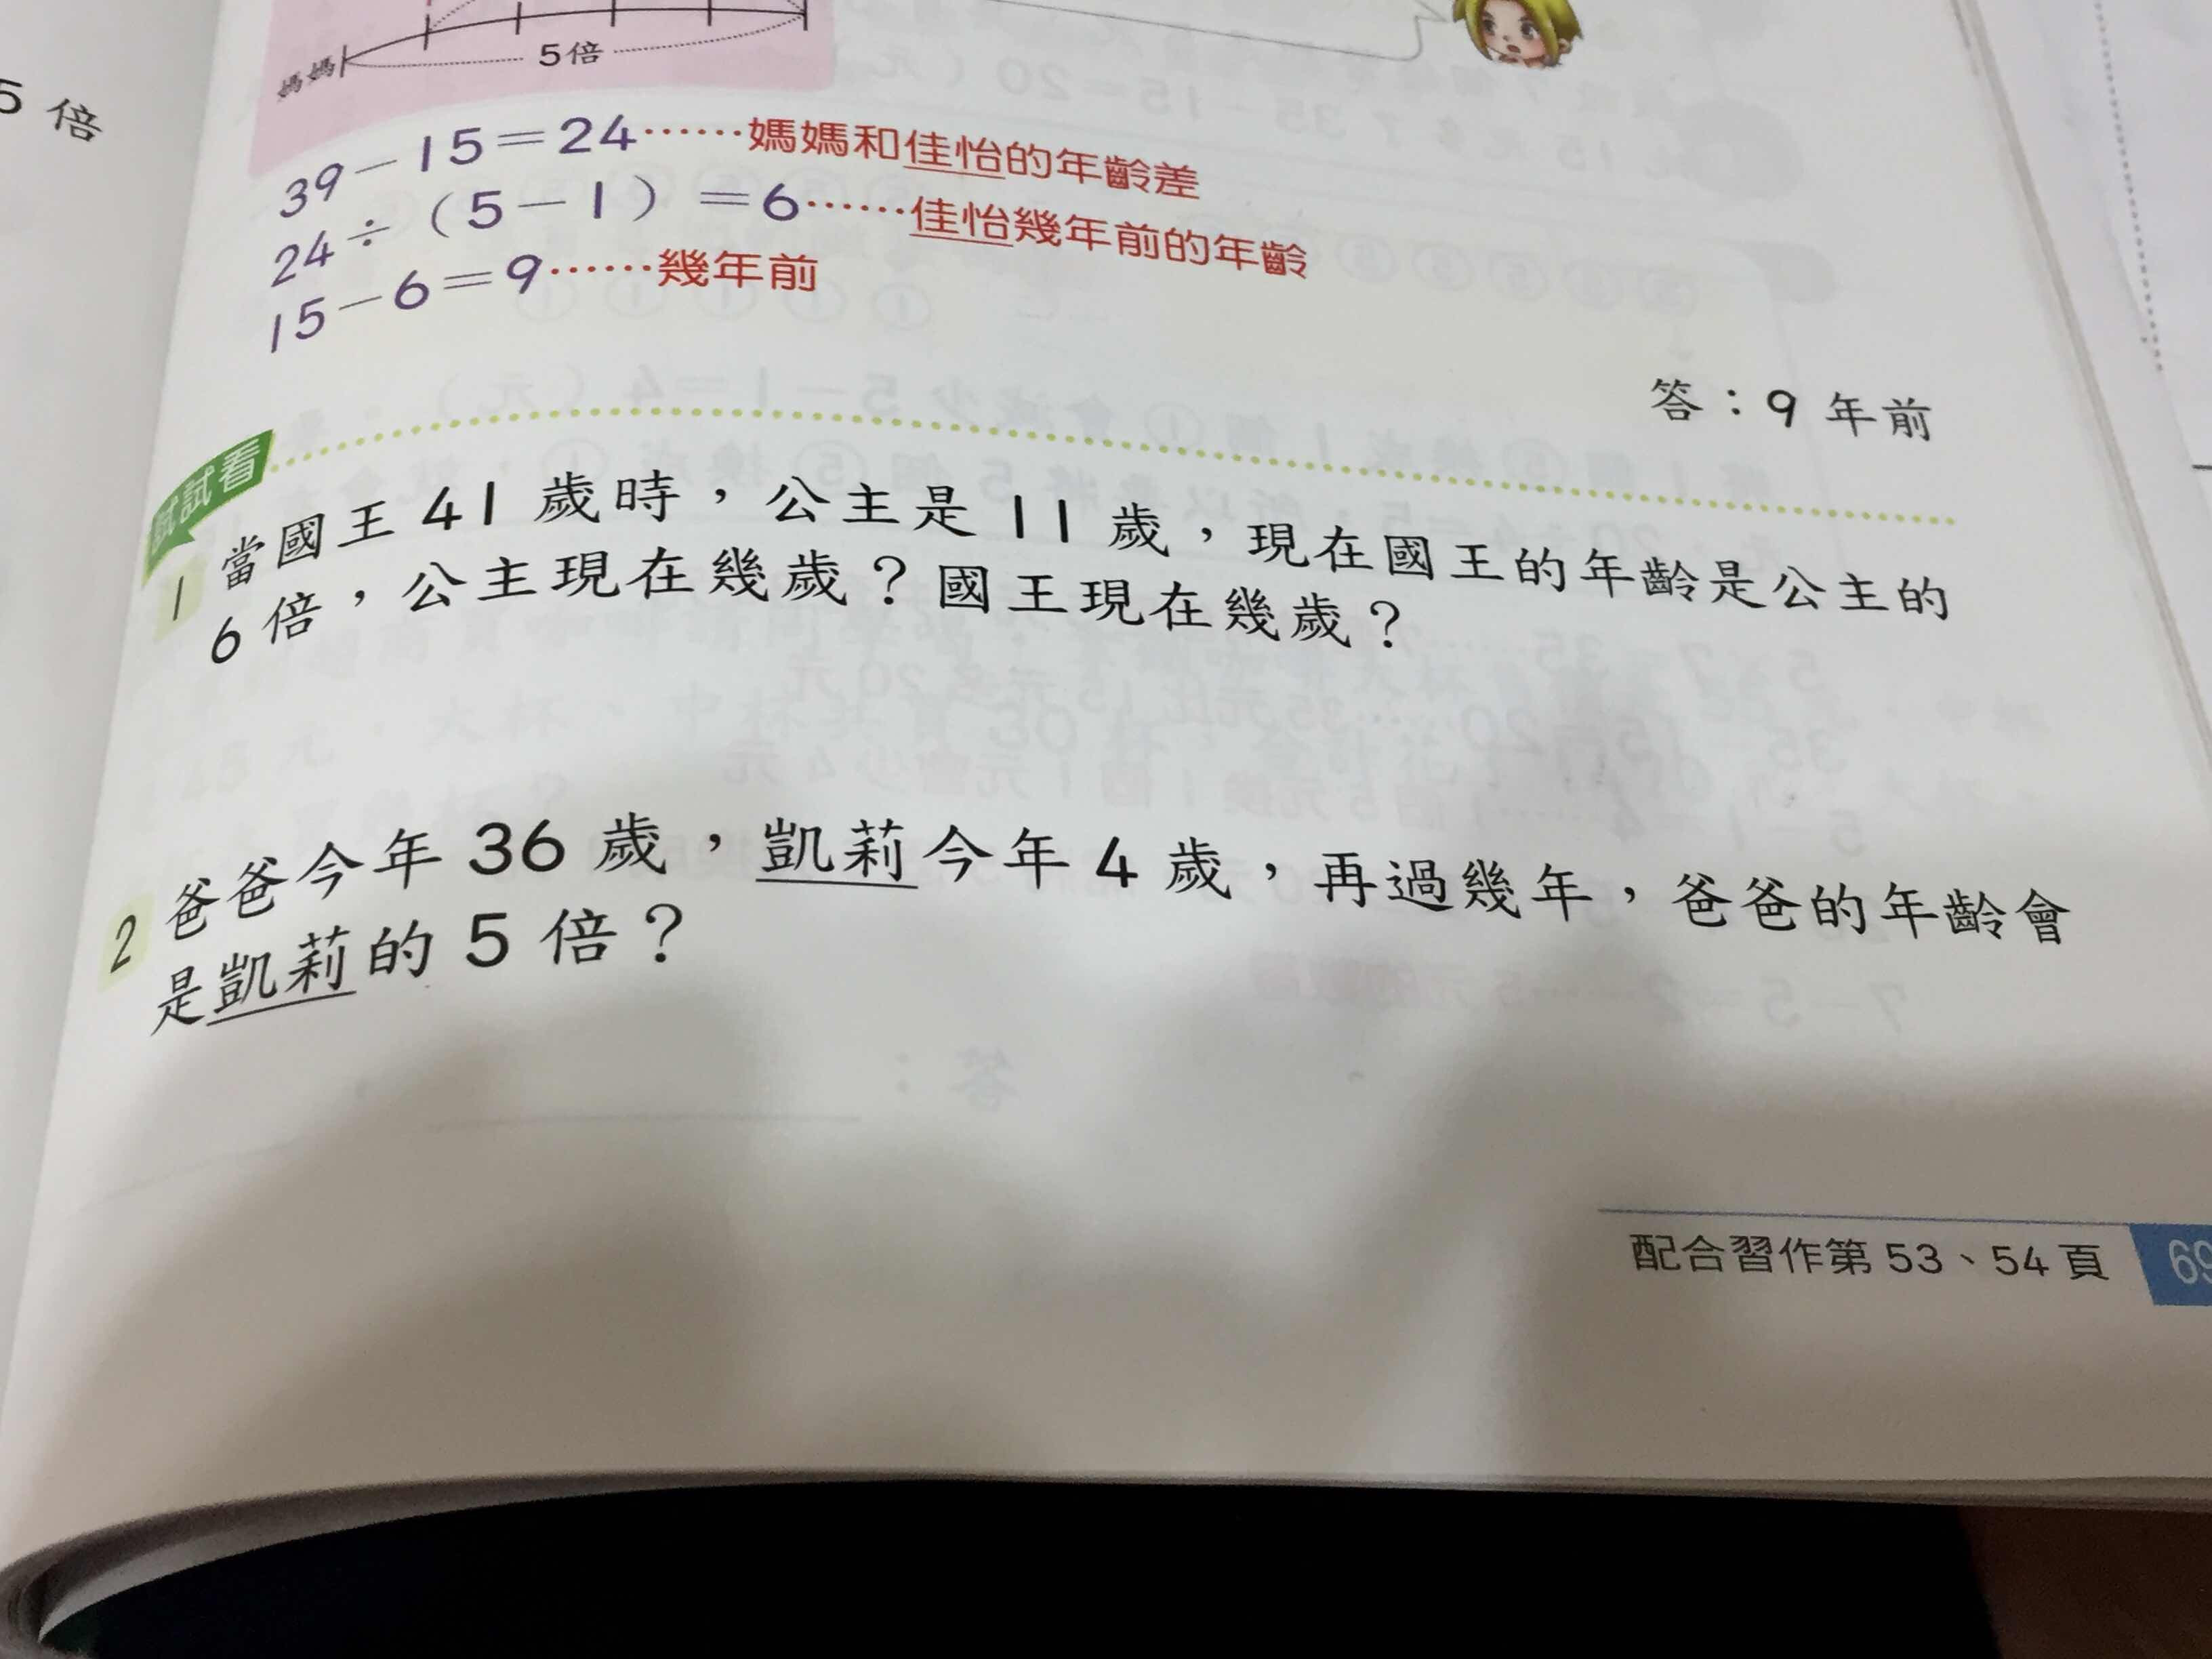 5 倍
媽媽
5倍
39－15＝24⋯⋯媽媽和佳怡的年齡差
24÷（5－1）＝6⋯⋯佳怡幾年前的年齡
15－6＝9⋯⋯幾年前
答：9 年前
試試看
1 當國王 41 歲時，公主是 11 歲，現在國王的年齡是公主的
6 倍，公主現在幾歲？國王現在幾歲？
2 爸爸今年 36 歲，凱莉今年 4 歲，再過幾年，爸爸的年齡會
是凱莉的 5 倍？
配合習作第 53、54 頁
69